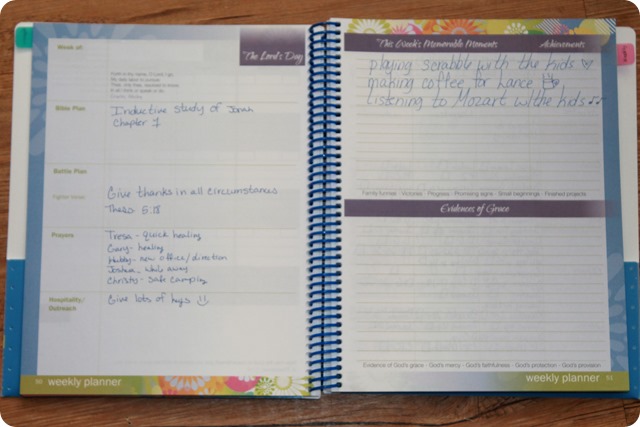 Week of:
"The Lord's Day
Bible Plan
Inductive study of Jonah
Chapter 1
Battle Plan
Fighter Verses
Give thanks in all circumstances
Thess 5:18
Prayers
Tresa - quick healing
healing
Hubby - new office/direction
Joshua - while away
Christy - safe camping
Hospitality/
Outreach
Give lots of hugs
50 weekly planner
"This Week's Memorable Moments
Achievements
playing scrabble with the kids
making coffee for Lance
listening to Mozart w/the kids
Family funnies · Victories · Progress · Promising signs · Small beginnings · Finished projects
Evidences of Grace
Evidence of God's grace · God's mercy · God's faithfulness · God's protection · God's provision
weekly planner 51